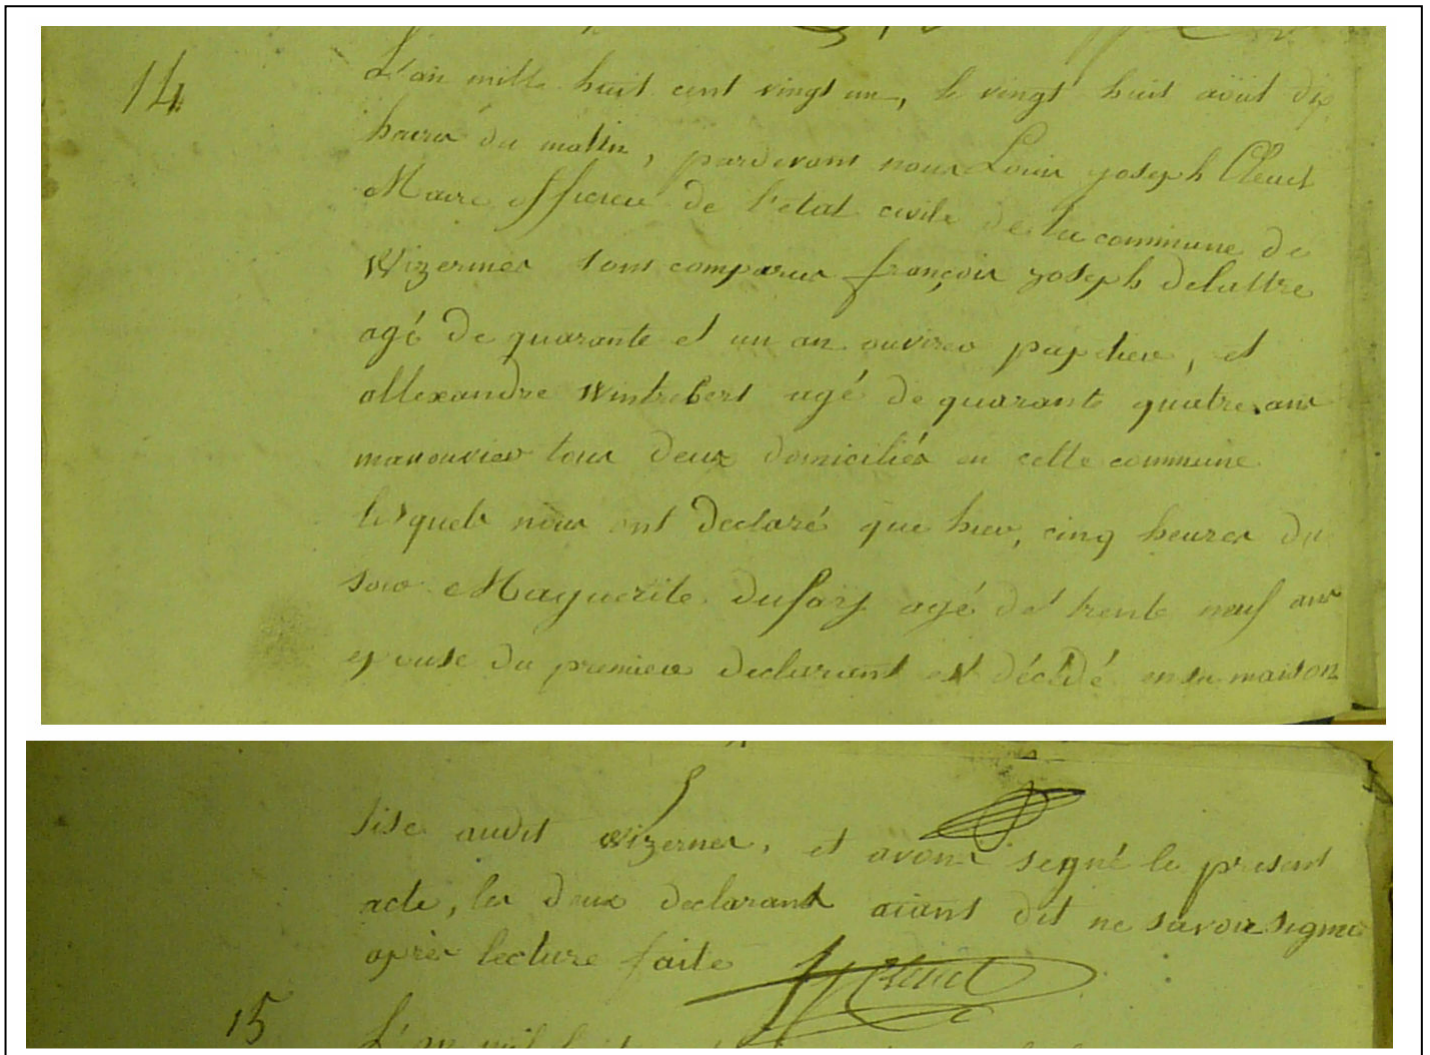 14
L'an mille huit cent vingt un, le vingt huit aout dix
heures du matin, pardevant nous Louis joseph Cleuet
Maire officier de l'etat civile de la commune de
Wizernes sont comparus françois joseph delattre
agé de quarante et un an ouvrier papetier, et
allexandre Wintrebert agé de quarante quatre ans
manouvrier tous deux domiciliés en cette commune
lesquels nous ont declaré que hier, cinq heures du
soir Maguerite dufay agé de trente neuf ans
epouse du premier declarant est décédé en sa maison
sise audit Wizernes, et avons segné le present
acte, les deux declarant aiant dit ne savoir signer
après lecture faite Cleuet
15
L'an mil